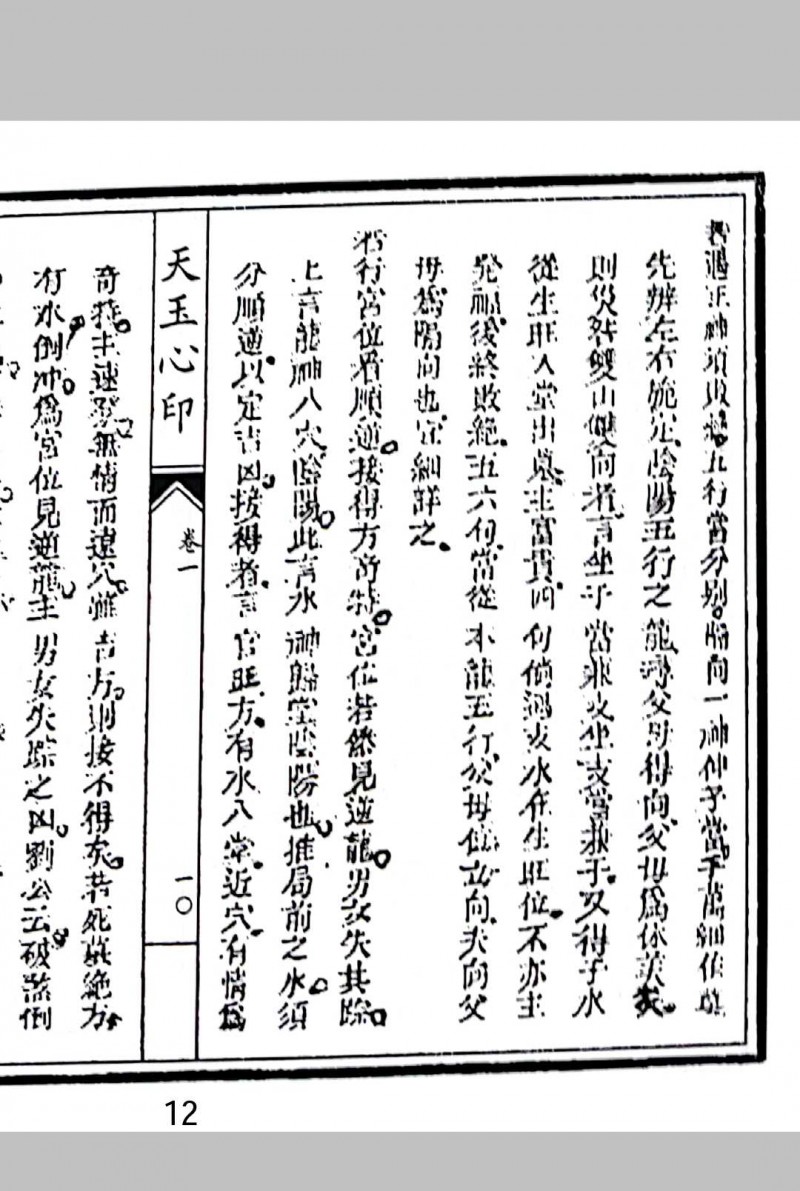 若遇正神須敗絕五行當分別隔向一神仲子當千萬細推詳
先辦左右旋定陰陽五行之龍尋父母得向父母為休美矣
則災咎雙山雙向者言坐子當兼支坐支當兼子又得子水
從生旺入堂出墓主富貴四句倘遇支水在生旺位不亦主
發福後終敗絕五六句當從本龍五行父母位立向夫向父
母為陽向也宜細詳之
若行宮位看順逆接得方奇特宮位若然見逆龍男女失其踪
上言龍神入穴陰陽此言水神歸堂陰陽也推局前之水須
分順逆以定吉凶接得者言官旺方有水入堂近穴有情為
天玉心印
卷一
一〇
奇特主速發無情而遠穴雖吉方則接不得矣若死墓絕方
有水倒冲為宮位見逆龍主男女失踪之凶劉公云破祿倒
12